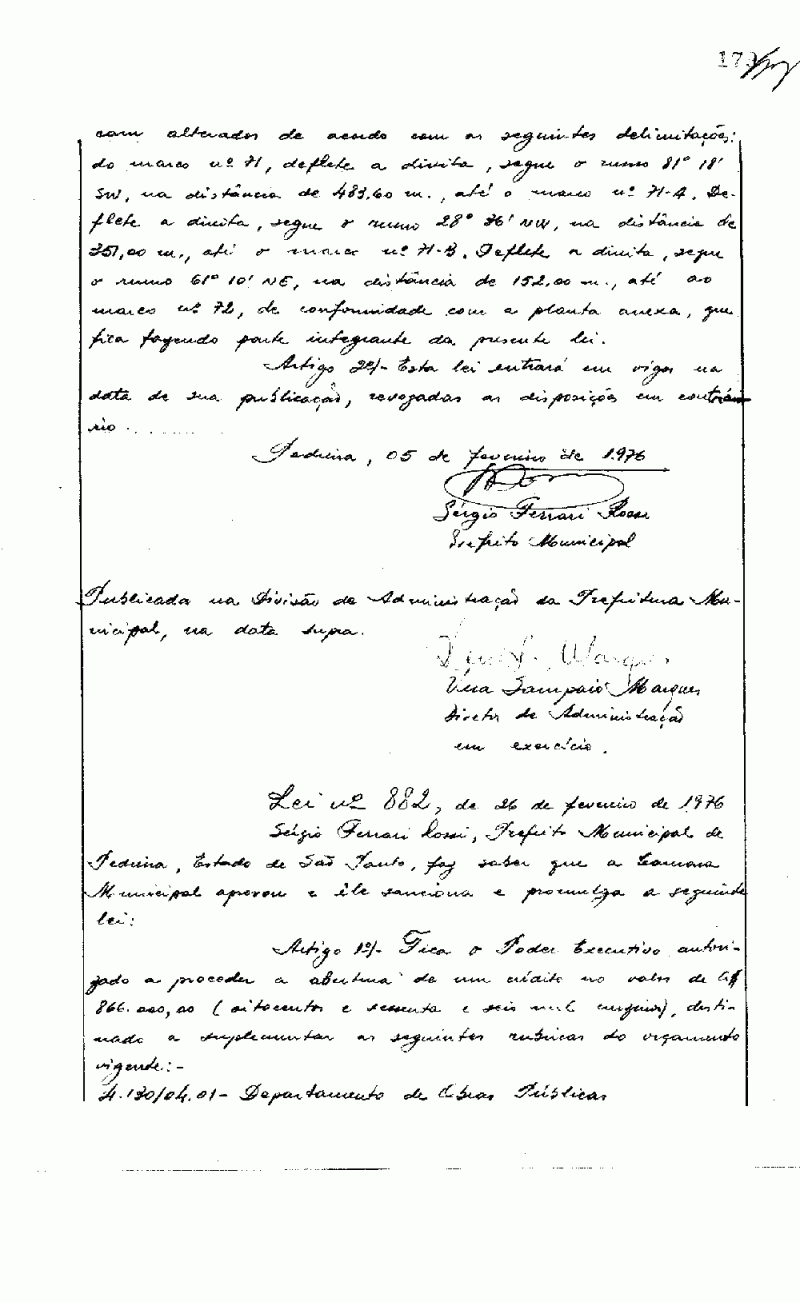 cam alterados de acordo com as seguintes delimitações:
do marco nº 71, deflete a direita, segue o rumo 81º 18'
SW, na distância de 483,60 m., até o marco nº 71-A. De-
flete a direita, segue o rumo 28º 36' NW, na distância de
351,00 m., até o marco nº 71-B. Deflete a direita, segue
o rumo 61º 10' NE, na distância de 152,00 m., até ao
marco nº 72, de conformidade com a planta anexa, que
fica fazendo parte integrante da presente lei.
Artigo 2º/- Esta lei entrará em vigor na
data de sua publicação, revogadas as disposições em contrá
rio.
Pedreira, 05 de fevereiro de 1.976
Sérgio Ferrari Rossi
Prefeito Municipal
Publicada na Divisão de Administração da Prefeitura Mu-
nicipal, na data supra.
Vera Sampaio Marques
Diretor de Administração
em exercício.
Lei nº 882, de 26 de fevereiro de 1.976
Sérgio Ferrari Rossi, Prefeito Municipal de
Pedreira, Estado de São Paulo, faz saber que a Camara
Municipal aprovou e êle sanciona e promulga a seguinte
lei:
Artigo 1º/- Fica o Poder Executivo autori-
zado a proceder a abertura de um crédito no valor de Cr$
866.000,00 (oitocentos e sessenta e seis mil cruzeiros), desti-
nado a suplementar as seguintes rubricas do orçamento
vigente:-
4.130/04.01- Departamento de Obras Públicas